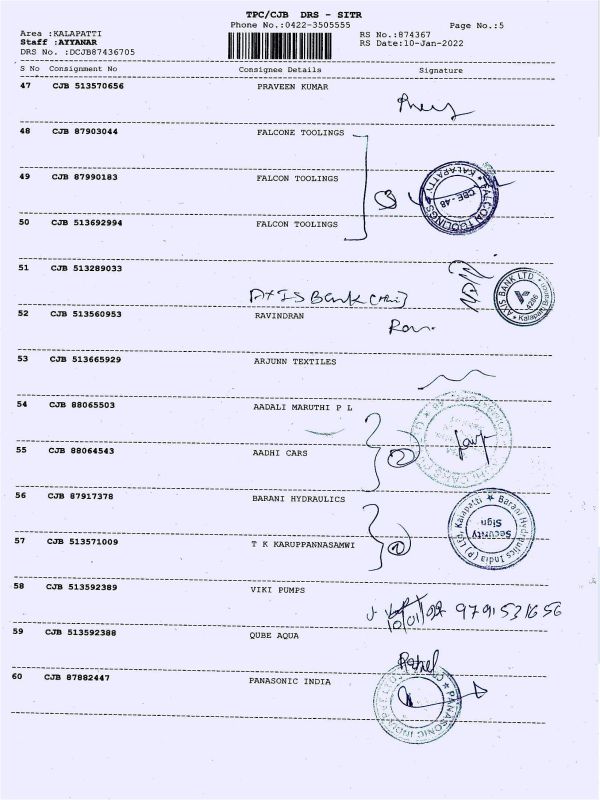 TPC/CJB DRS - SITR
Phone No.:0422-3505555 Page No.:5
Area :KALAPATTI RS No.:874367
Staff :AYYANAR RS Date:10-Jan-2022
DRS No. :DCJB87436705
S No Consignment No Consignee Details Signature
47 CJB 513570656 PRAVEEN KUMAR
48 CJB 87903044 FALCONE TOOLINGS
49 CJB 87990183 FALCON TOOLINGS
FALCON TOOLINGS ★ KALAPATTY ★
CBE - 48
3
50 CJB 513692994 FALCON TOOLINGS
51 CJB 513289033
AXIS Bank
AXIS BANK LTD. ★ Kalapatti
52 CJB 513560953 RAVINDRAN
53 CJB 513665929 ARJUNN TEXTILES
54 CJB 88065503 AADALI MARUTHI P L
55 CJB 88064543 AADHI CARS
2
56 CJB 87917378 BARANI HYDRAULICS
★ Barani Hydraulics India (P) Ltd. Kalapatti
Security
Sign
57 CJB 513571009 T K KARUPPANNASAMWI
58 CJB 513592389 VIKI PUMPS
10/01/22 9791531656
59 CJB 513592388 QUBE AQUA
60 CJB 87882447 PANASONIC INDIA
★ PANASONIC INDIA